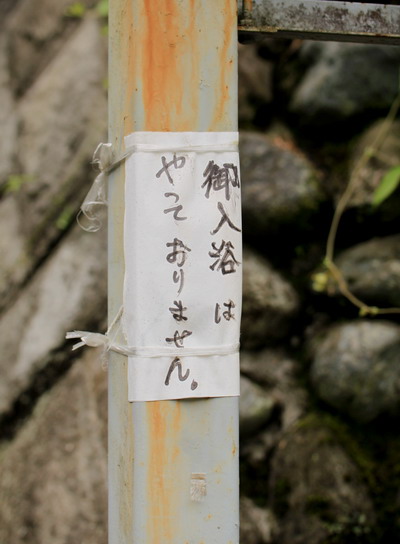 御入浴は
やって おりません。